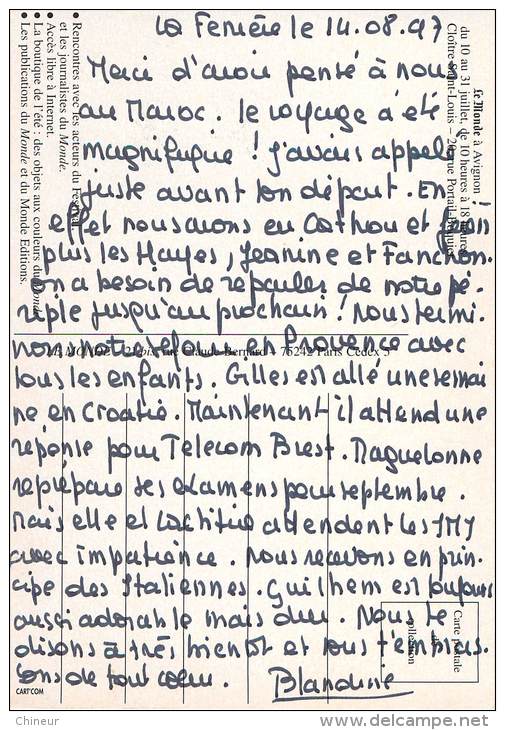 La Fenière le 14.08.97
Merci d'avoir pensé à nous
au Maroc. le voyage a été
magnifique ! j'avais appelé
juste avant ton départ. En
effet nous avons eu Cathou et
plus les Hayes, Jeanine et Fanchon.
on a besoin de reparler de notre pé-
riple jusqu'au prochain ! Nous termi-
nons notre en Provence avec
tous les enfants. Gilles est allé une semai
ne en Croatie. Maintenant il attend une
réponse pour Telecom Brest. Maguelonne
reprépare ses examens pour septembre.
Mais elle et Laetitia attendent les JMJ
avec impatience. Nous recevons en prin-
cipe des Italiennes. Guilhem est toujours
aussi adorable mais dur. Nous te
disons à très bientôt et tous t'embras-
sons de tout coeur. Blandine
le Monde à Avignon
du 10 au 31 juillet, de 10 heures à 18 heures
Cloître Saint-Louis – 20, rue Portail-Boquier
● Rencontres avec les acteurs du Festival
et les journalistes du Monde.
● Accès libre à Internet.
● La boutique de l'été : des objets aux couleurs du Monde
● Les publications du Monde et du Monde Editions.
LE MONDE – 21 bis, rue Claude-Bernard – 75242 Paris Cedex 5
Carte postale
de
collection
CART'COM
Chineur
www.delcampe.net